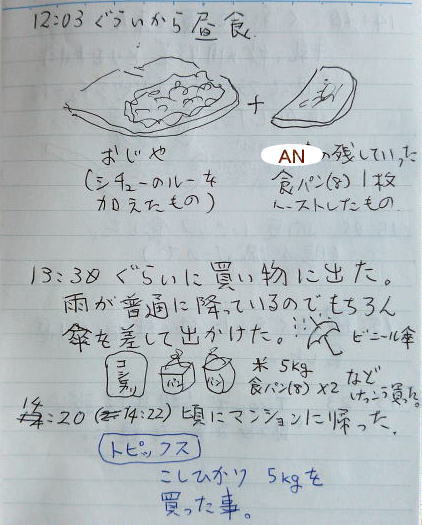 12:03 ぐらいから昼食.
おじや
(シチューのルーを
加えたもの)
+
AN の残していった
食パン(8) 1枚
トーストしたもの.
13:30 ぐらいに買い物に出た。
雨が普通に降っているのでもちろん
傘を差して出かけた。
ビニール傘
パン
パン
米 5kg
食パン(8) ×2 など
けっこう買った。
14:20 (14:22) 頃にマンションに帰った.
トピックス
こしひかり 5kgを
買った事。